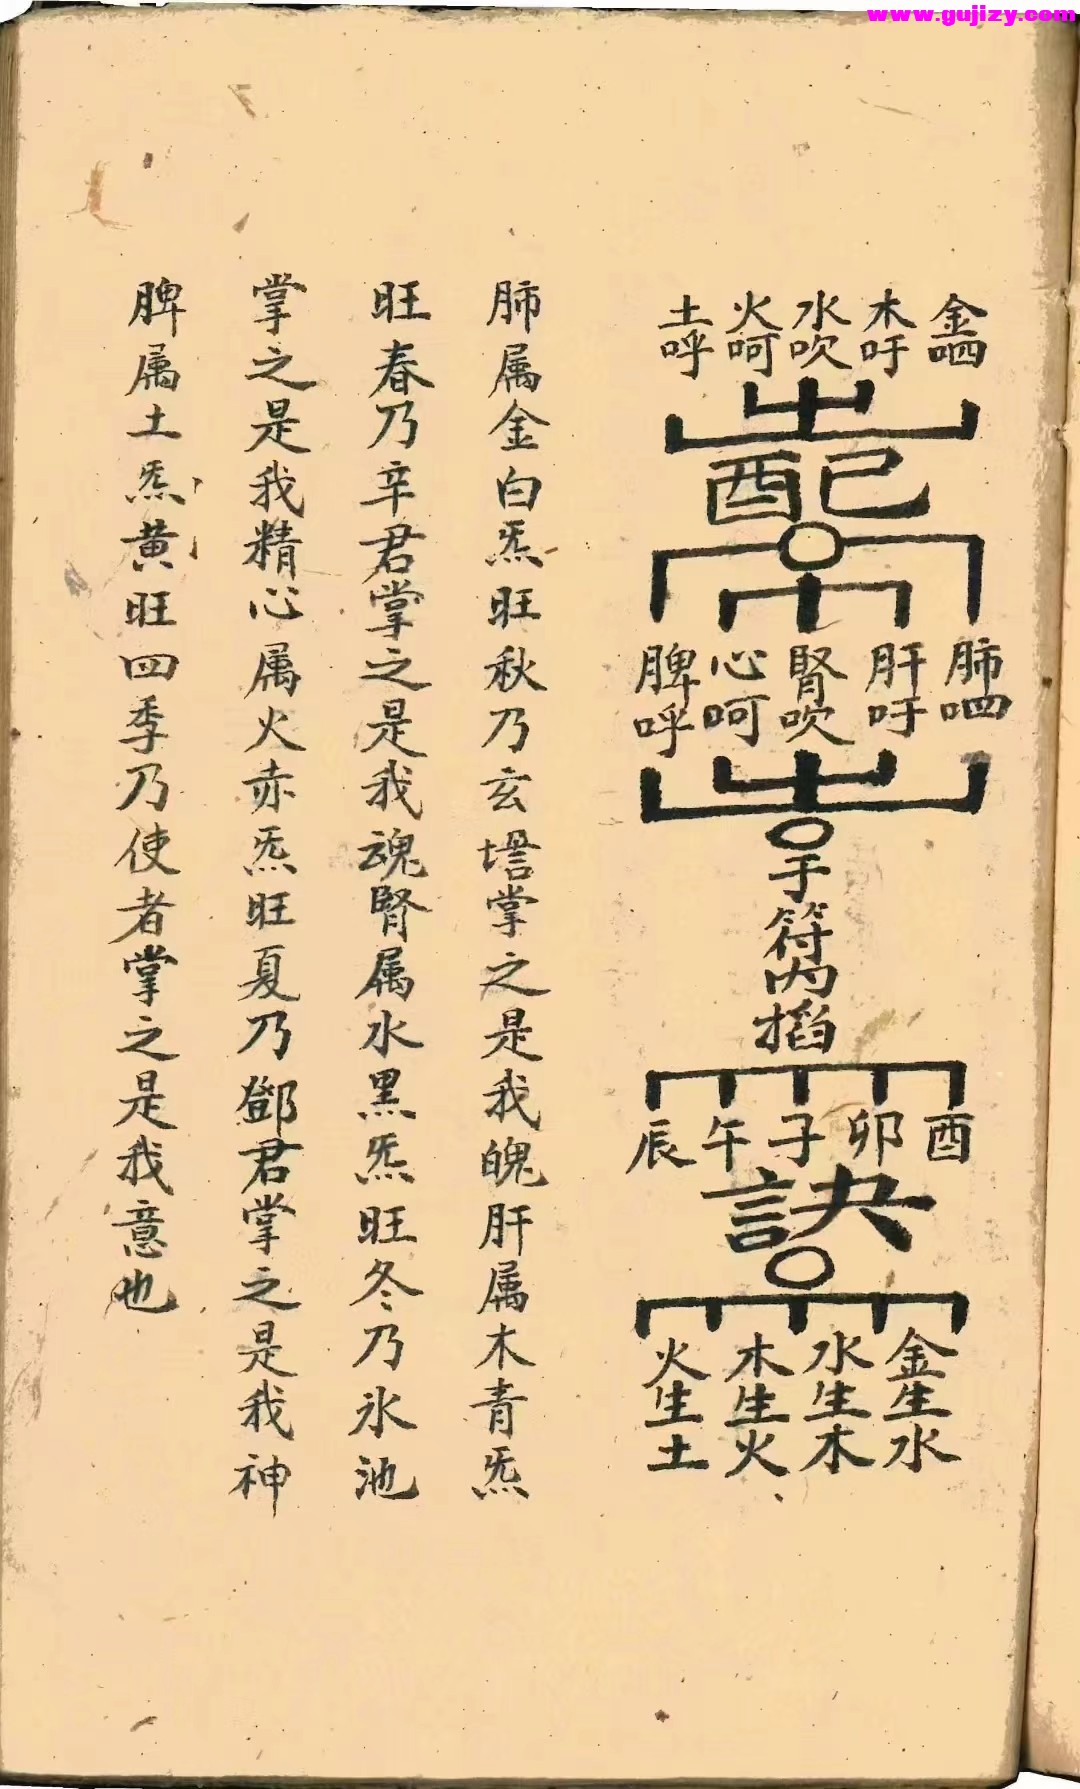 www.gujizy.com
金呬
木吁
水吹
火呵
土呼
配
肺呬
肝吁
腎吹
心呵
脾呼
于符内搯
酉
卯
子
午
辰
訣
金生水
水生木
木生火
火生土
肺属金白炁旺秋乃玄掌之是我魄肝属木青炁
旺春乃辛君掌之是我魂腎属水黑炁旺冬乃氷池
掌之是我精心属火赤炁旺夏乃鄧君掌之是我神
脾属土炁黄旺四季乃使者掌之是我意也